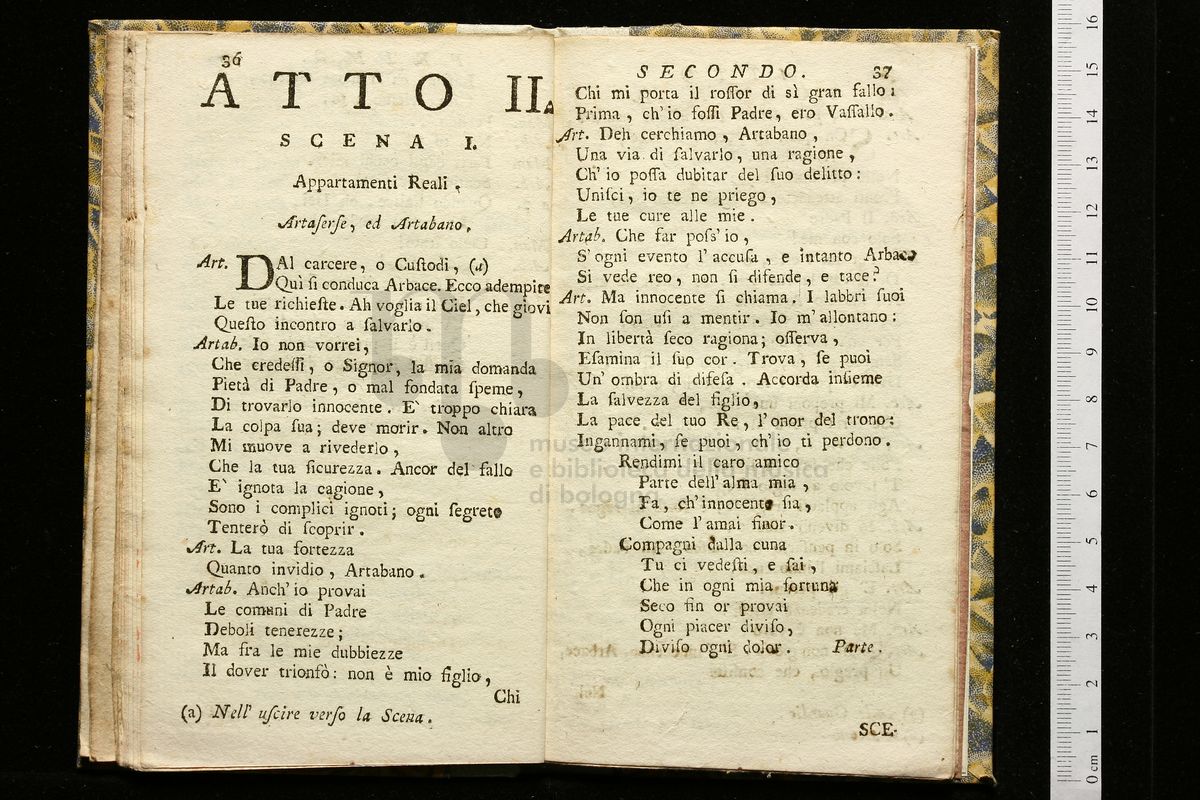 36
ATTO II.
SCENA I.
Appartamenti Reali.
Artaſerſe, ed Artabano.
Art. DAl carcere, o Cuſtodi, (a)
Quì ſi conduca Arbace. Ecco adempite
Le tue richieſte. Ah voglia il Ciel, che giovi
Queſto incontro a ſalvarlo.
Artab. Io non vorrei,
Che credeſſi, o Signor, la mia domanda
Pietà di Padre, o mal fondata ſpeme,
Di trovarlo innocente. E` troppo chiara
La colpa ſua; deve morir. Non altro
Mi muove a rivederlo,
Che la tua ſicurezza. Ancor del fallo
E` ignota la cagione,
Sono i complici ignoti; ogni ſegreto
Tenterò di ſcoprir.
Art. La tua fortezza
Quanto invidio, Artabano.
Artab. Anch' io provai
Le comuni di Padre
Deboli tenerezze;
Ma fra le mie dubbiezze
Il dover trionfò: non è mio figlio,
Chi
(a) Nell' uſcire verſo la Scena.
SECONDO. 37
Chi mi porta il roſſor di sì gran fallo:
Prima, ch' io foſſi Padre, ero Vaſſallo.
Art. Deh cerchiamo, Artabano,
Una via di ſalvarlo, una ragione,
Ch' io poſſa dubitar del ſuo delitto:
Uniſci, io te ne priego,
Le tue cure alle mie.
Artab. Che far poſs' io,
S' ogni evento l' accuſa, e intanto Arbace
Si vede reo, non ſi difende, e tace?
Art. Ma innocente ſi chiama. I labbri ſuoi
Non ſon uſi a mentir. Io m' allontano:
In libertà ſeco ragiona; oſſerva,
Eſamina il ſuo cor. Trova, ſe puoi
Un' ombra di difeſa. Accorda inſieme
La ſalvezza del figlio,
La pace del tuo Re, l' onor del trono:
Ingannami, ſe puoi, ch' io ti perdono.
Rendimi il caro amico
Parte dell' alma mia,
Fa, ch' innocente ſia,
Come l' amai finor.
Compagni dalla cuna
Tu ci vedeſti, e ſai,
Che in ogni mia fortuna
Seco fin or provai
Ogni piacer diviſo,
Diviſo ogni dolor. Parte.
SCE-
museo internazionale
e biblioteca della musica
di bologna
0 cm 1 2 3 4 5 6 7 8 9 10 11 12 13 14 15 16